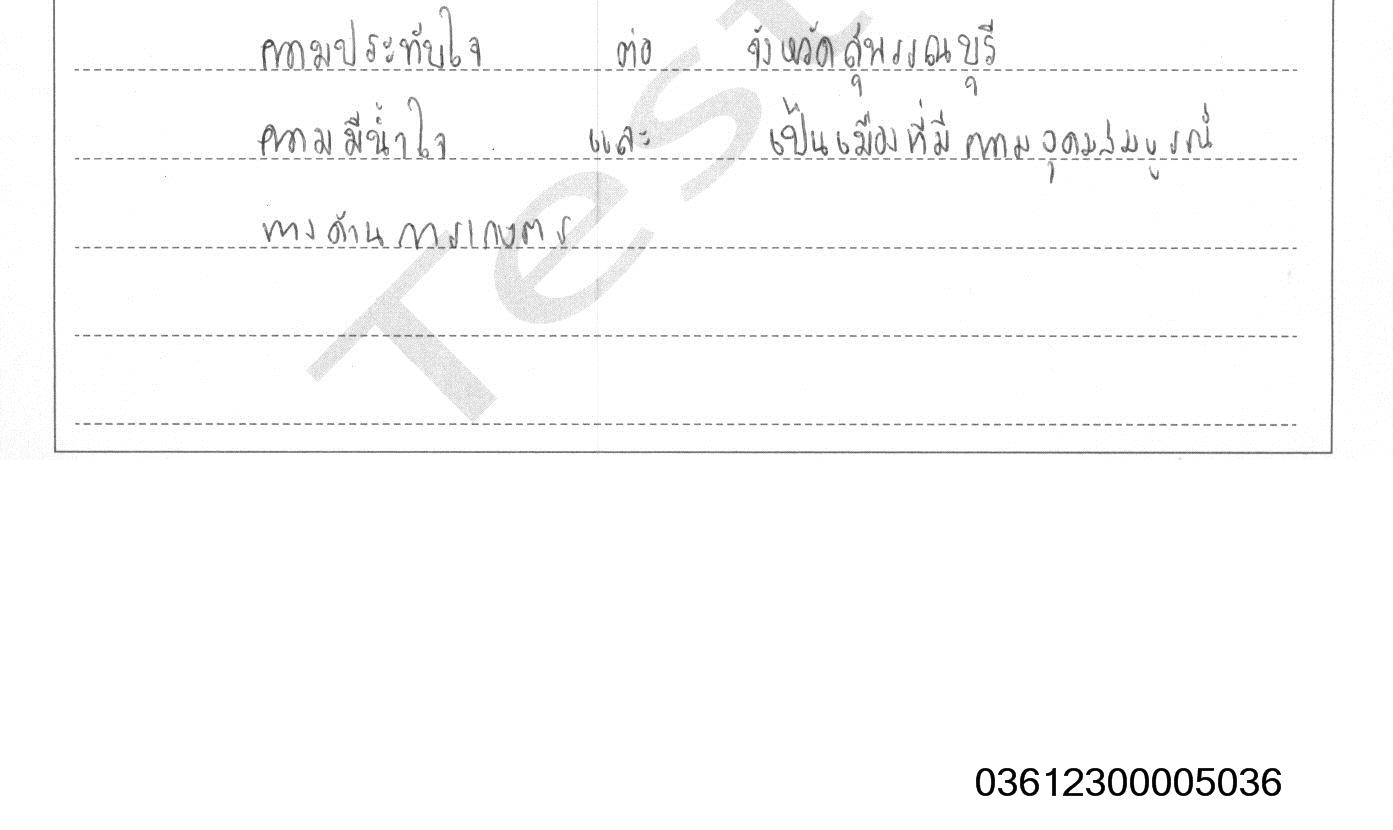 ความประทับใจ ต่อ จังหวัดสุพรรณบุรี
ความมีน้ำใจ และ เป็นเมืองที่มี ความอุดมสมบูรณ์
ทางด้านการเกษตร
Test
03612300005036